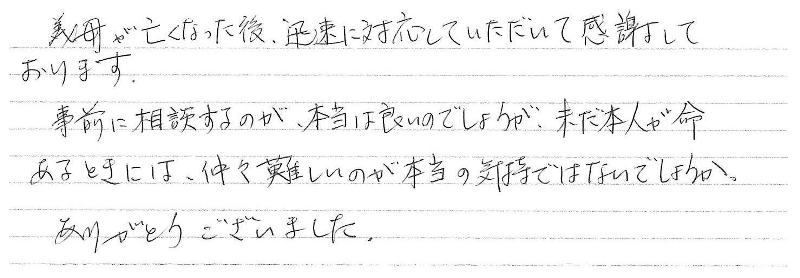 義母が亡くなった後、迅速に対応していただいて感謝して
おります。
事前に相談するのが、本当は良いのでしょうが、未だ本人が命
あるときには、仲々難しいのが本当の気持ではないでしょうか。
ありがとうございました。